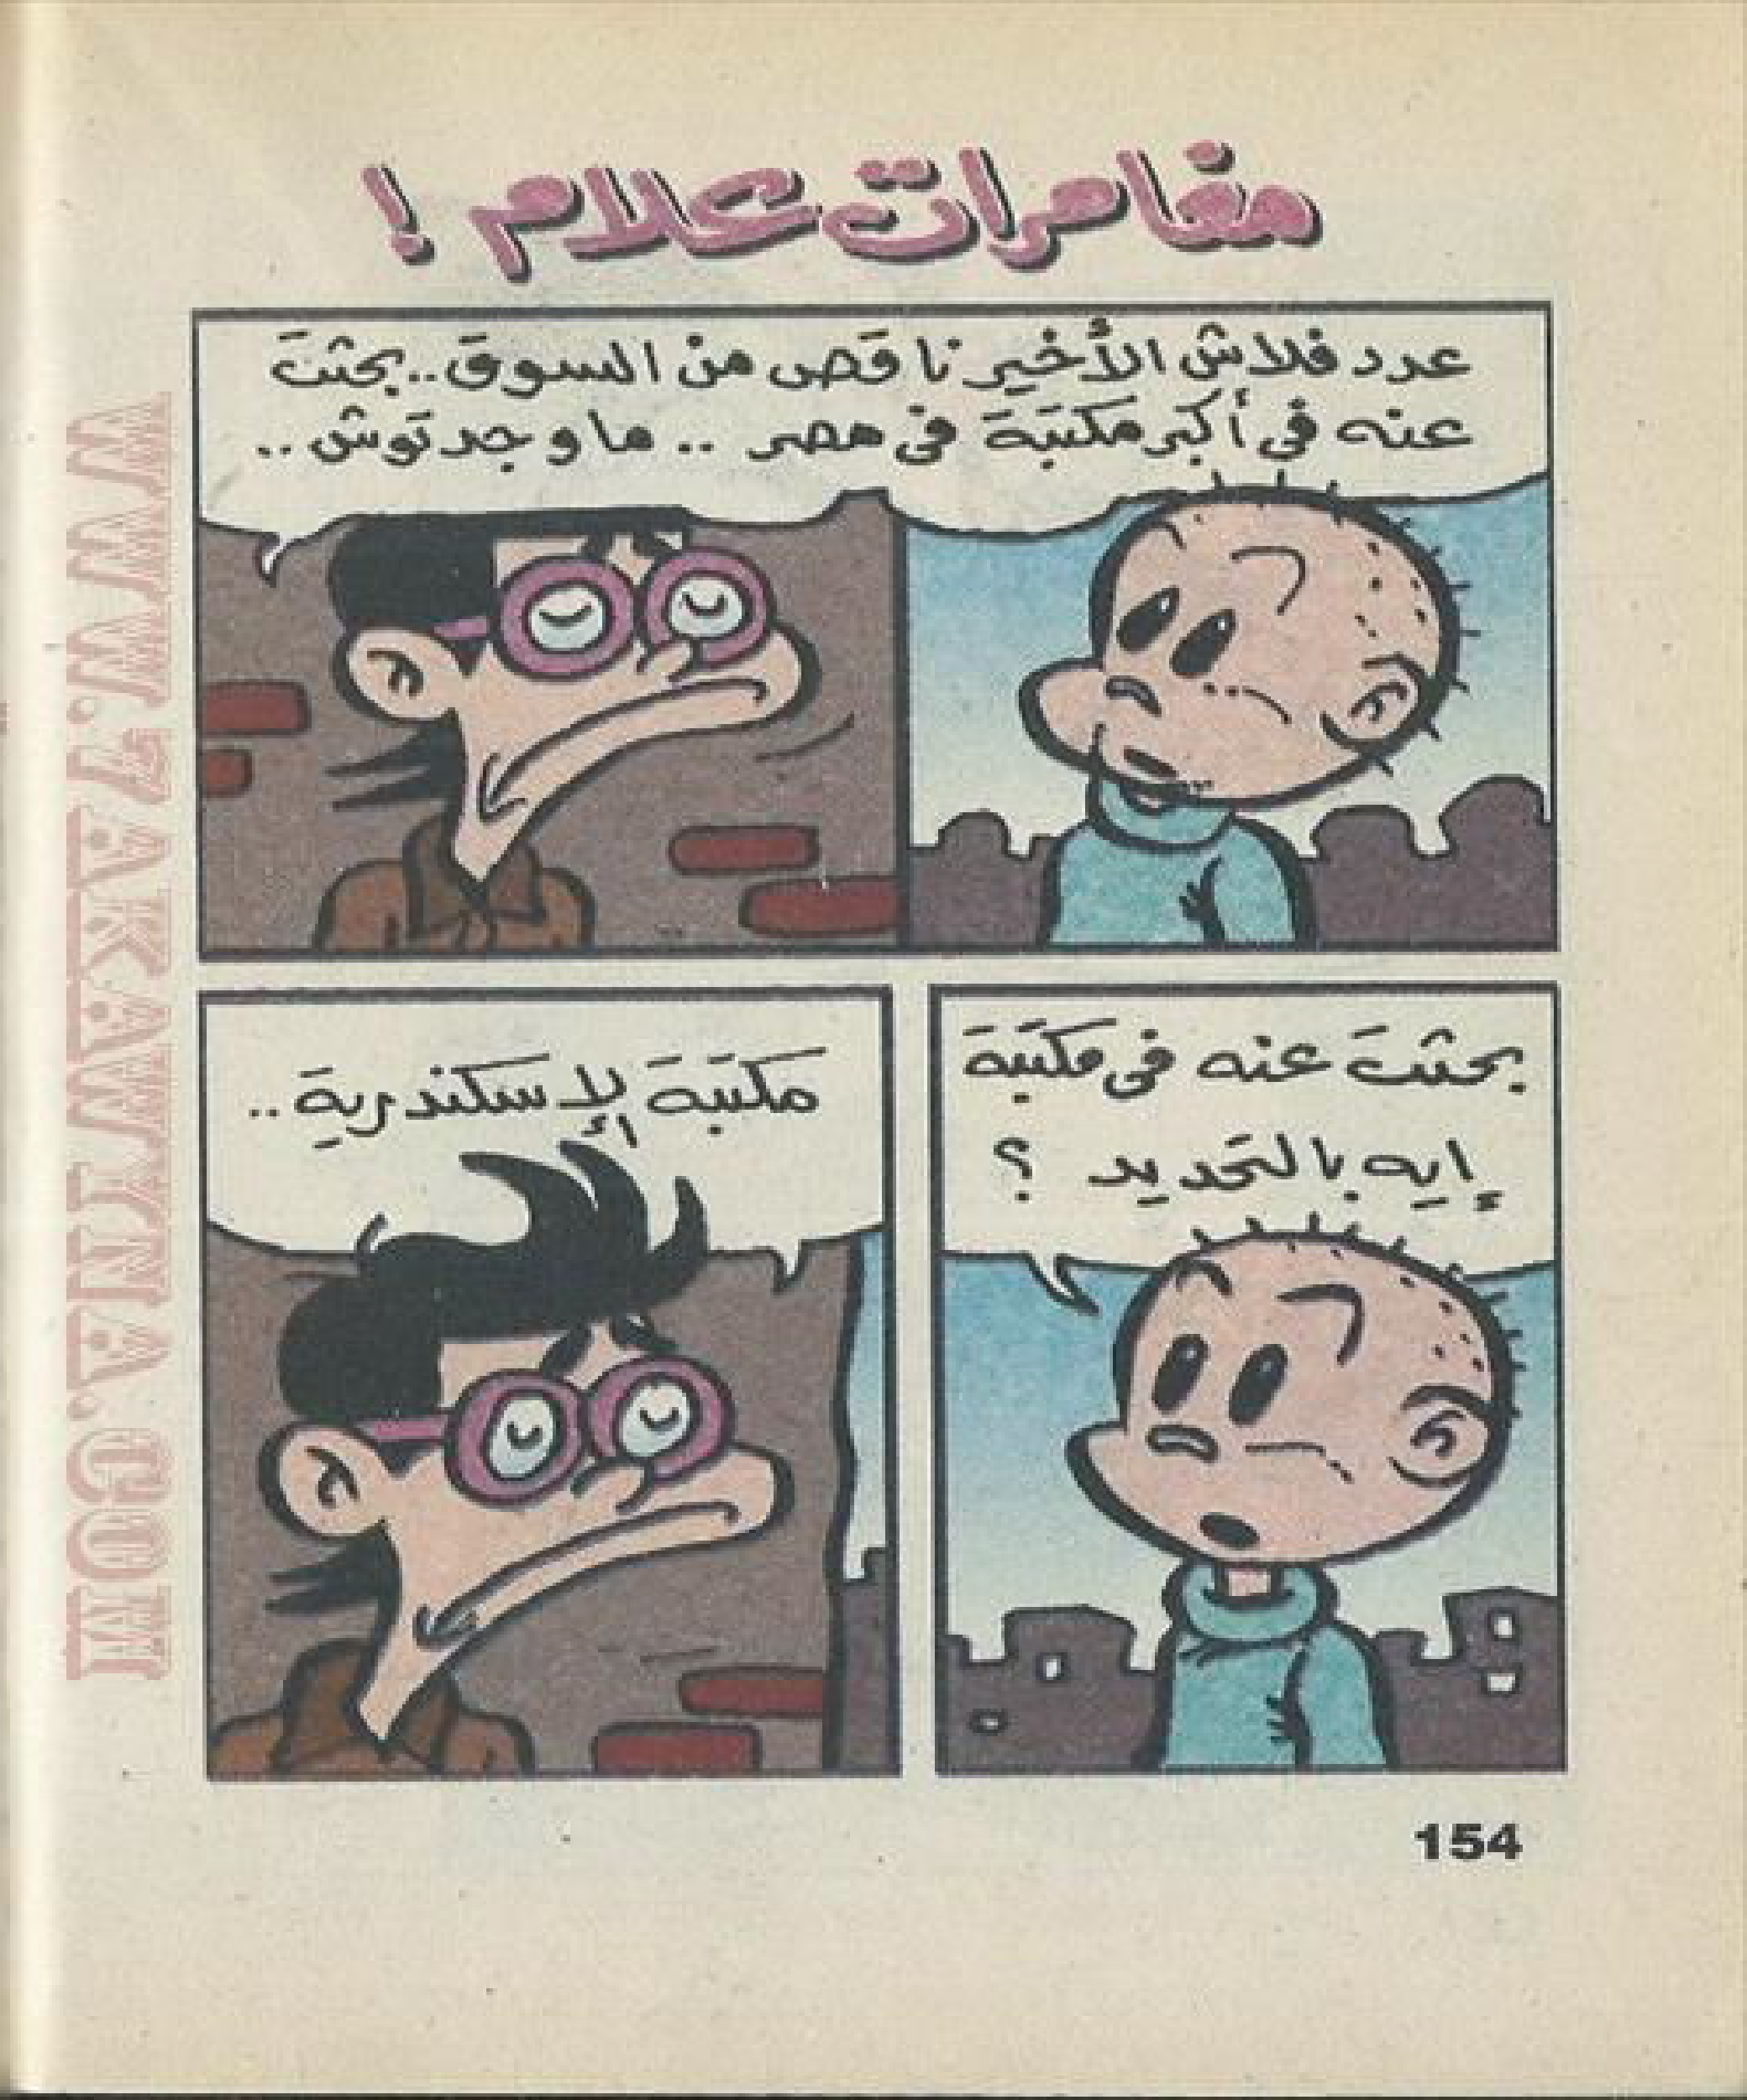 مغامرات علام !
عدد فلاش الأخير ناقص من السوق.. بحثت
عنه فى أكبر مكتبة فى مصر .. ما وجدتوش ..
بحثت عنه فى مكتبة
إيه بالتحديد ؟
مكتبة الإسكندرية ..
154
WWW.7AKAWITNA.COM